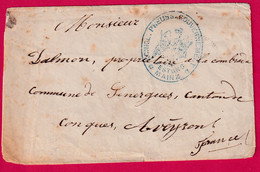 Monsieur
Dalmon, propriétaire à la combe
Commune de Senergues, canton de
Conques, Aveyron
france